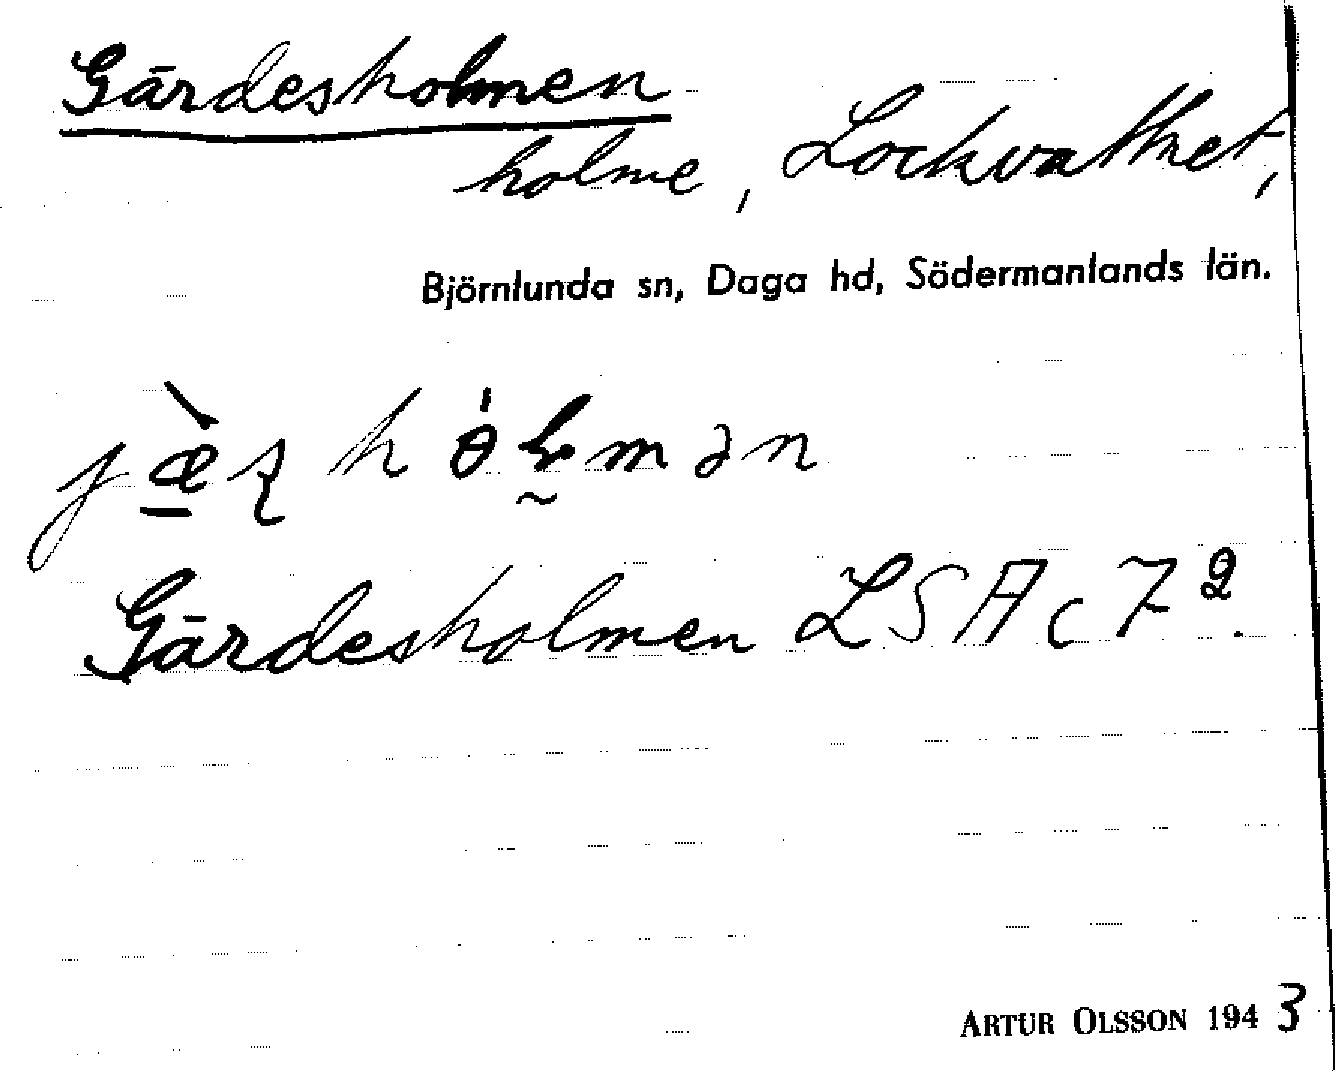 Gärdesholmen
holme, Lockvattnet,
Björnlunda sn, Daga hd, Södermanlands län.
Gärdesholmen LSA c 7².
ARTUR OLSSON 1943